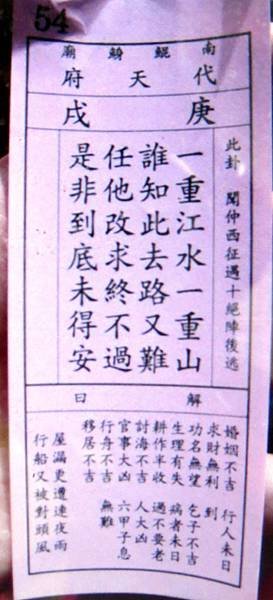 54
南鯤鯓廟
代天府
庚戌
此卦 聞仲西征遇十絕陣後逃
一重江水一重山
誰知此去路又難
任他改求終不過
是非到底未得安
解曰
婚姻不吉 行人未日
求財無利 到
功名無望 乞子不吉
生理有失 病者未日
耕作半收 過不要老
討海不吉 人大凶
官事大凶 六甲子息
行舟不吉 無難
移居不吉
屋漏更遭連夜雨
行船又被對頭風